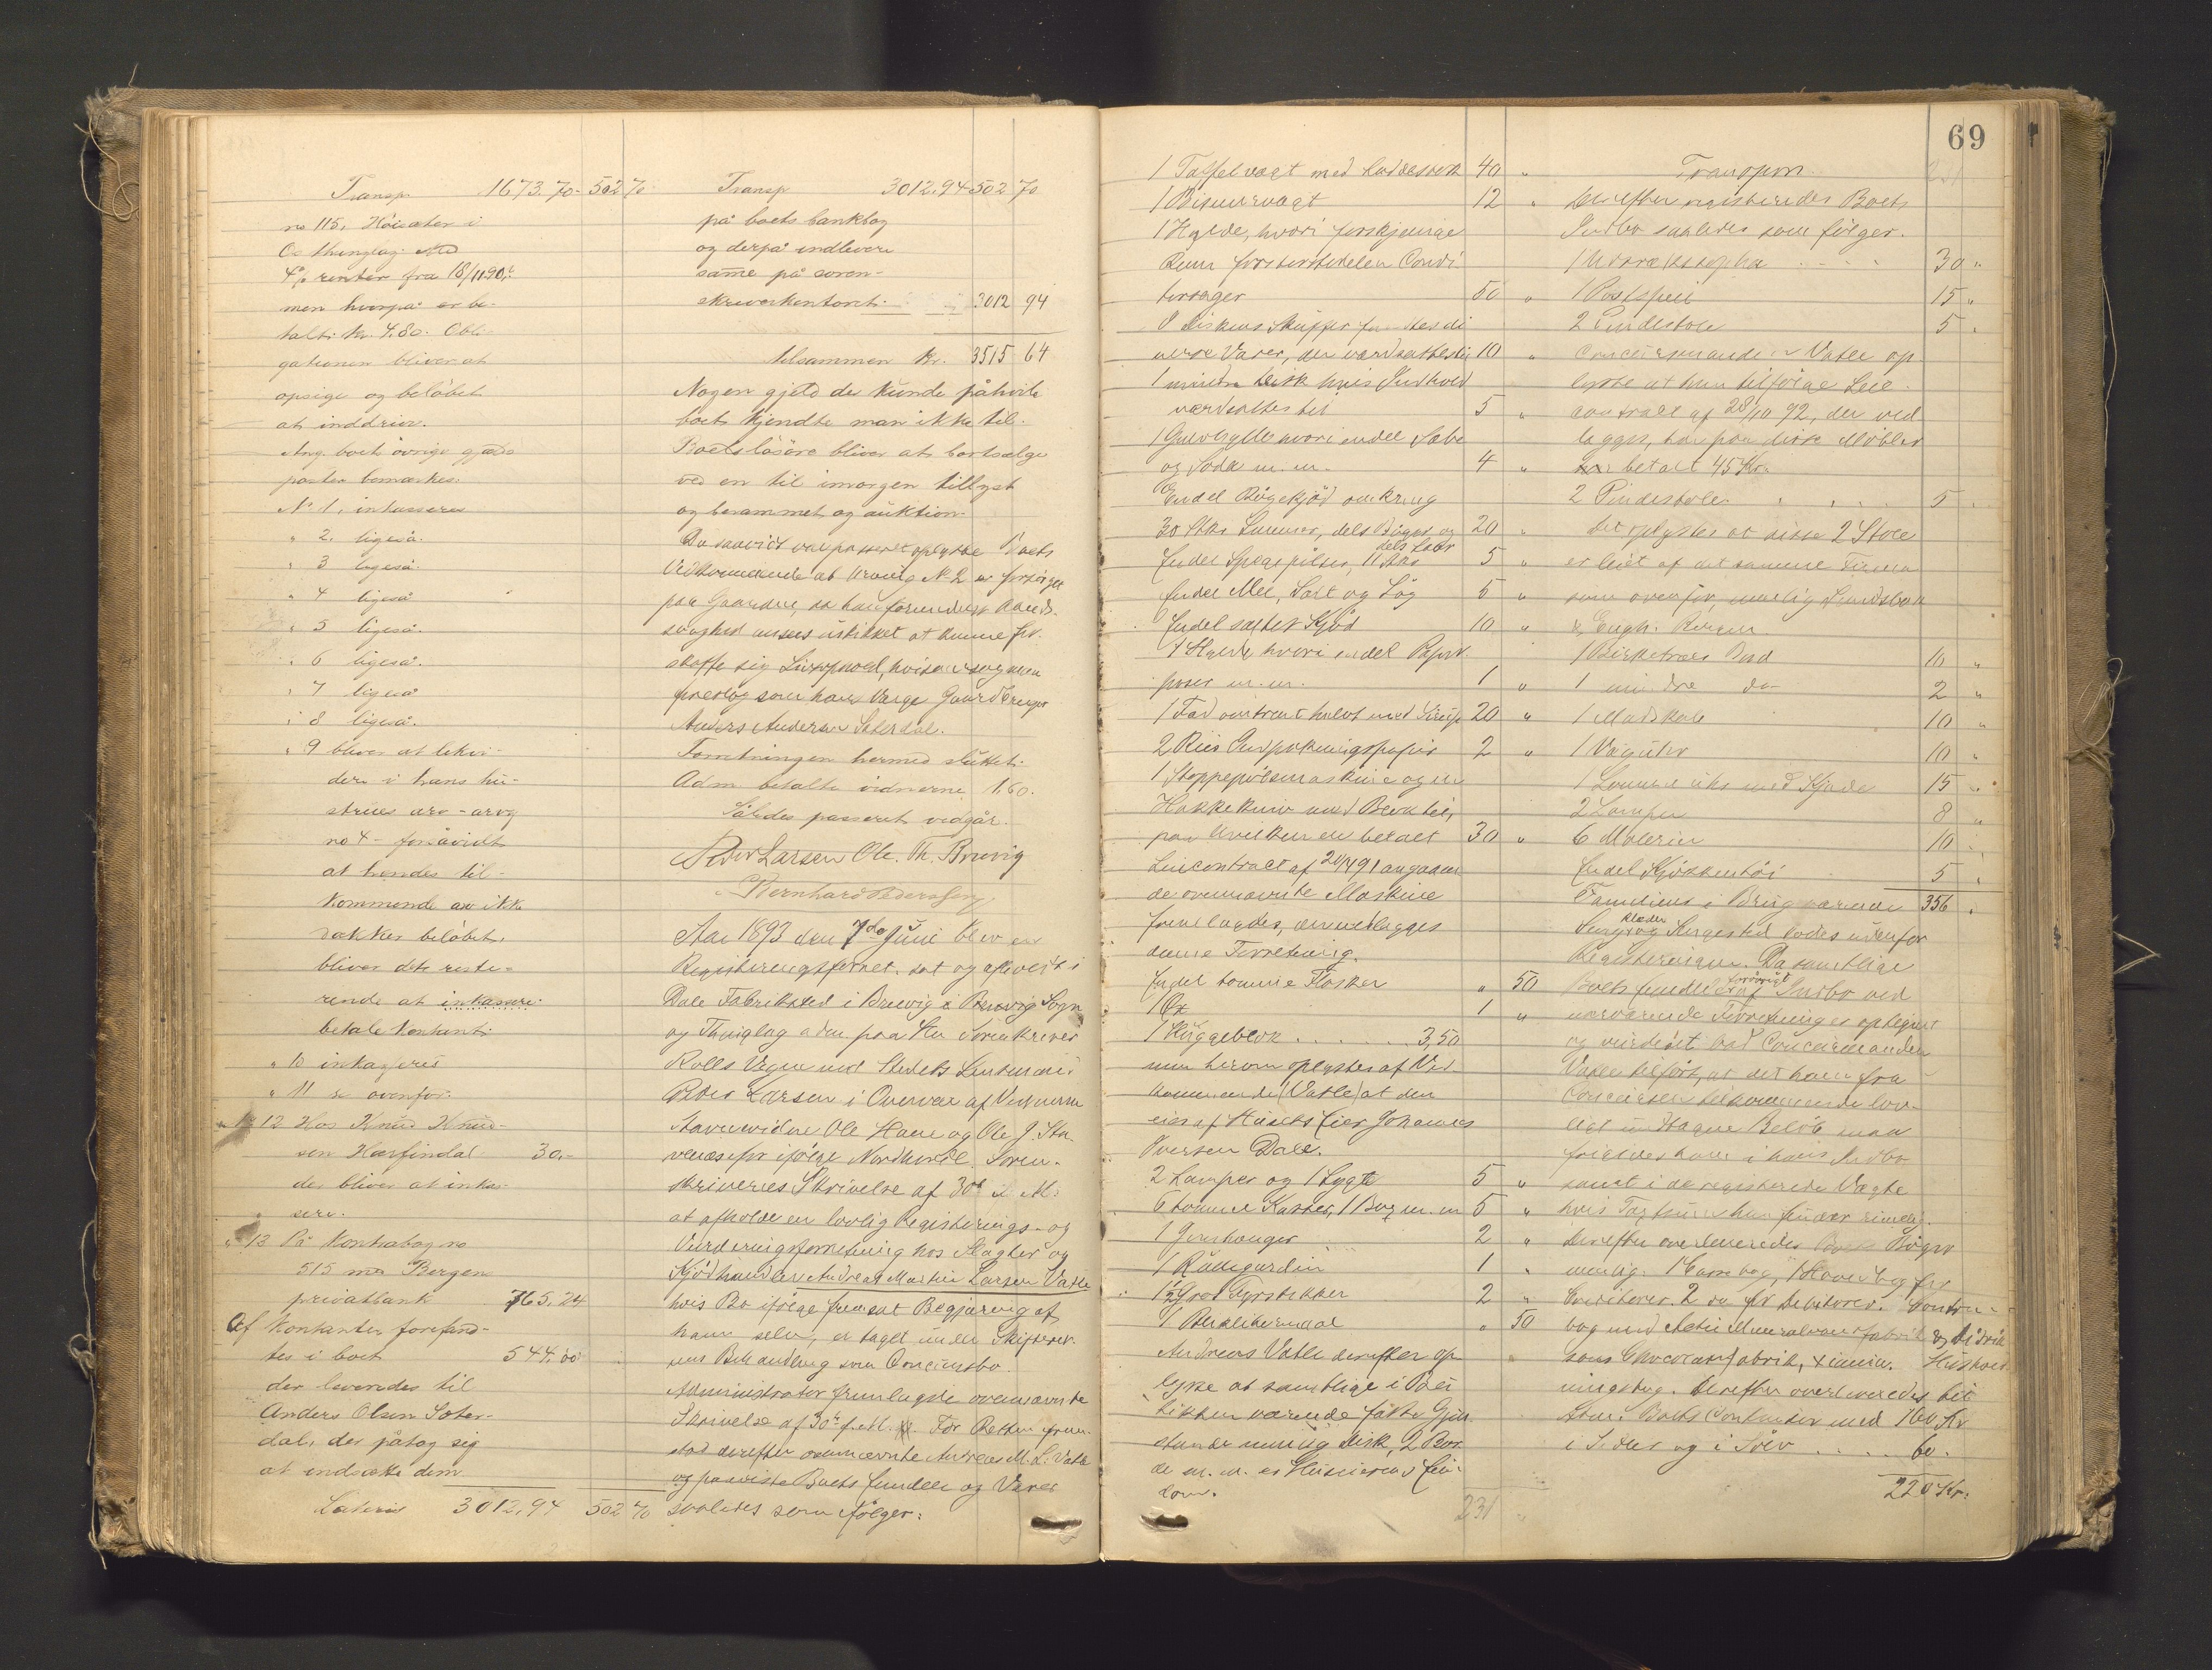 Transp 1673.70 - 502 70
no 115, Höisæter i
Os thinglag. Med
4% renter fra 18/11 90,
men hvorpå er be-
talt kr. 4.80. Obli-
gationen bliver at
opsige og beløbet
at inddrive.
Ang. boets övrige gjælds
poster bemærkes:
No 1, inkasseres
" 2. ligeså.
" 3 ligeså.
" 4 ligeså
" 5 ligeså.
" 6 ligeså.
" 7 ligeså
" 8 ligeså.
" 9 bliver at likvi-
dere i hans hu-
strues arv - arvg
no 4 - forsåvidt
at hendes til-
kommende arv ikke
rækker beløbet,
bliver dette reste-
rende at inkassere.
betale kontant.
" 10 inkasseres
" 11 se ovenfor.
" 12 Hos Knud Knud-
sen Hæfindal 30.-
der bliver at inkas-
sere.
" 13 På kontrabog no
515 med Bergens
privatbank 765.24
Af kontanter forefand-
tes i boet 544.00
der leveredes til
Anders Olsen Sæter-
dal, der påtog sig
at indsætte dem
Lateris 3012.94 502 70
Transp 3012.94 502 70
på boets bankbog
og derpå indlevere
samme på soren-
skriverkontoret. 3012 94
tilsammen kr. 3515 64
Nogen gjeld der kunde påhvile
boet kjendte man ikke til.
Boets lösöre bliver at bortsælge
ved en til imorgen tillyst
og berammet og auktion.
Da saavidt var passeret oplyste Boets
Vedkommende at Arving No 2 er forsörget
paa Gaarden, da han formedelst Aands-
svaghed ansees uskikket at kunne for-
skaffe sig Livsophold, hvis
foreslog som hans Værge Gaardbruger
Anders Andersen Sæterdal.
Forretningen hermed sluttet.
Adm. betalte vidnerne 1.60.
Således passeret vedgår.
Peder Larsen Ole. Th. Bruvig
Bernhard Pedersen
Aar 1893 den 7de Juni blev en
Registreringsforret. sat og afholdt i
Dale Fabriksted i Bruvig i Bruvig Sogn
og Thinglag adm. paa Hr. Sorenskriver
Rolls Vegne ved Stedets Lensmand
Peder Larsen i Overvær af Vidnerne
Stavnevidne Ole Hane og Ole J. Sta-
venæs for ifölge Nordhordl. Soren-
skriveries Skrivelse af 30te f. M.
at afholde en lovlig Registrerings- og
Vurderingsforretning hos Slagter og
Kjödhandler Andreas Martin Larsen Vatle
hvis Bo ifölge fremsat Begjæring af
ham selv, er taget under Skifteret-
tens Behandling som Concursbo.
Administrator fremlagde ovennævnte
Skrivelse af 30te f. M. For Retten frem-
stod derefter ovennævnte Andreas M. L. Vatle
og paaviste Boets Eiendele og Varer
saaledes som fölger:
69
1 Taffelvægt med Lodder 40 "
1 Bismervægt 12 "
1 Hylde, hvori forskjellige
Rum for störstedelen Condi-
torsager 50 "
8 Diskens Skuffer findtes di-
verse Varer, der værdsattes til 10 "
1 mindre Disk hvis Indhold
værdsattes til 5 "
1 Gulvhylle hvori endel Sæbe
og Soda m. m. 4 "
Endel Rögekjöd omkring
30 Stkr
dels Laar
20 "
Endel Spegepölser, 11 Stkr 5 "
Endel Mel, Salt og Lög 5 "
Endel saltet Kjöd 10 "
1 Hylde hvori endel Papir
poser m. m. 1 "
1 Fad omtrent halvt med Sirup 20 "
2 Riis Indpakningspapir 2 "
1 Stoppepölsemaskine og en
Hakkekniv med Benk til,
paa hvilken er betalt 30 "
Leiecontract af 20/4 91 angaaen-
de ovennævnte Maskine
fremlagdes, der vedlægges
denne Forretning.
Endel tomme Flasker " 50
1 Öx 1 "
1 Huggeblok . . . . . . . 3,50
men herom oplystes af Ved-
kommende (Vatle) at den
eies af Husets Eier Johannes
Iversen Dale.
2 Lamper og 1 Lygte 5 "
6 tomme Kasser, 1 Bog m. m 5 "
1 2 "
1 Rullegardin 1 "
1½ Gros Fyrstikker 2 "
1 " 50
Andreas Vatle derefter op-
lyste at samtlige i Bu-
tikken værende faste Gjen-
stande nemlig Disk, 2 Bor-
de m. m. er Huseierens Eien-
dom.
231
Transport 231
Derefter registreredes Boets
Indbo saaledes som fölger.
1 Udtrækssopha 30 "
1 15 "
2 Pindestole 5 "
Concursmanden Vatle op-
lyste at han ifölge Leie
contract af 28/10 92, der ved
lægges, har paa disse Möbler
betalt 45 Kr.
2 Pindestole 5 "
Det oplystes at disse 2 Stole
er leiet af det samme Firma
som ovenfor, nemlig
& Engh. Bergen
1 Birketræes Bord 10 "
1 mindre do 2 "
1 Madskab 10 "
1 Væguhr 10 "
1 Lommeuhr med Kjæde 15 "
2 Lamper 8 "
6 Malerier 10 "
Endel Kjökkentöi 5 "
Familiens i Brug værende 356 "
Sengeklæder og Sengested lodes udenfor
Registreringen. Da samtlige
Boets Eiendele af Indbo ved
nærværende Forretninger optegnet
og vurderet bad Concursmanden
Vatle tilfört, at det ham fra
Concursen tilkommende lov-
ligt undtagne Belöb maa
forbeholdes ham i hans Indbo
samt i de registrerede Vægte
hvis Forhold han finder rimelig.
Derefter overleveredes Boets Böger
nemlig: 1 Cassabog, 1 Hovedbog for
Creditorer. 2 do for Debitorer. Contra-
bog med
Chocoladefabrik, Xiania. Hushold-
ningsbog. Derefter overleveredes til
Adm: Boets Contanter med 160 Kr
i Sedler og i Sölv . . . . 60.
220 Kr.